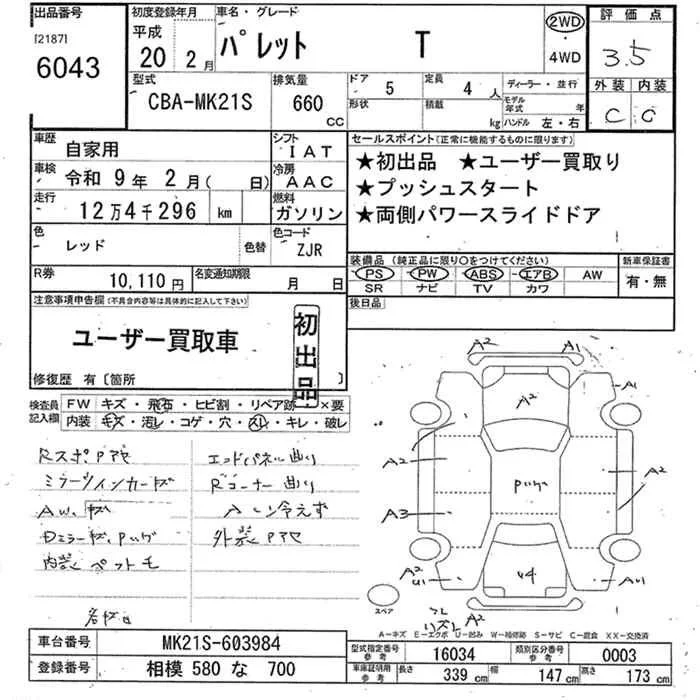 出品番号
[2187]
6043
初度登録年月
平成
20 2月
車名・グレード
パレット T
2WD
・
4WD
評価点
3.5
外装 内装
C C
型式
CBA-MK21S
排気量
660
CC
ドア
5
定員
4 人
形状
積載
kg
ディーラー・並行
モデル
年式 年
ハンドル 左・右
車歴
自家用
シフト
IAT
車検
令和 9年 2月( 日)
冷房
AAC
走行
12万4千296 km
燃料
ガソリン
色
レッド
色替
色コード
ZJR
R券
10,110円
名変通知期限
月 日
セールスポイント(正常に機能するものに限ります)
★初出品 ★ユーザー買取り
★プッシュスタート
★両側パワースライドドア
装備品(純正品に限り○をつけてください)
PS PW ABS エアB AW
SR ナビ TV カワ
新車保証書
有・無
後日品
注意事項申告欄(不具合内容等は具体的に記入して下さい)
ユーザー買取車
初出品
修復歴 有〔箇所 〕
検査員
記入欄
FW キズ・飛石・ヒビ割・リペア跡・×要
内装 キズ・汚レ・コゲ・穴・スレ・キレ・破レ
RスポPアセ
ミラーウインカーキズ
A.W.キズ
Dミラーキズ、Pハゲ
内装ペット毛
エンドパネル曲り
Rコーナー曲り
Aレ冷えず
外装Pアセ
A2 A1
A2
A1
A2
Pハゲ
A2
A3
A2
U1
U4
A2
スペア
A-キズ E-エクボ U-凹み W-補修跡 S-サビ C-腐食 XX-交換済
車台番号
MK21S-603984
登録番号
相模 580 な 700
型式指定番号
参考
16034
類別区分番号
参考
0003
車庫証明用
参考
長さ
339 cm
幅
147 cm
高さ
173 cm